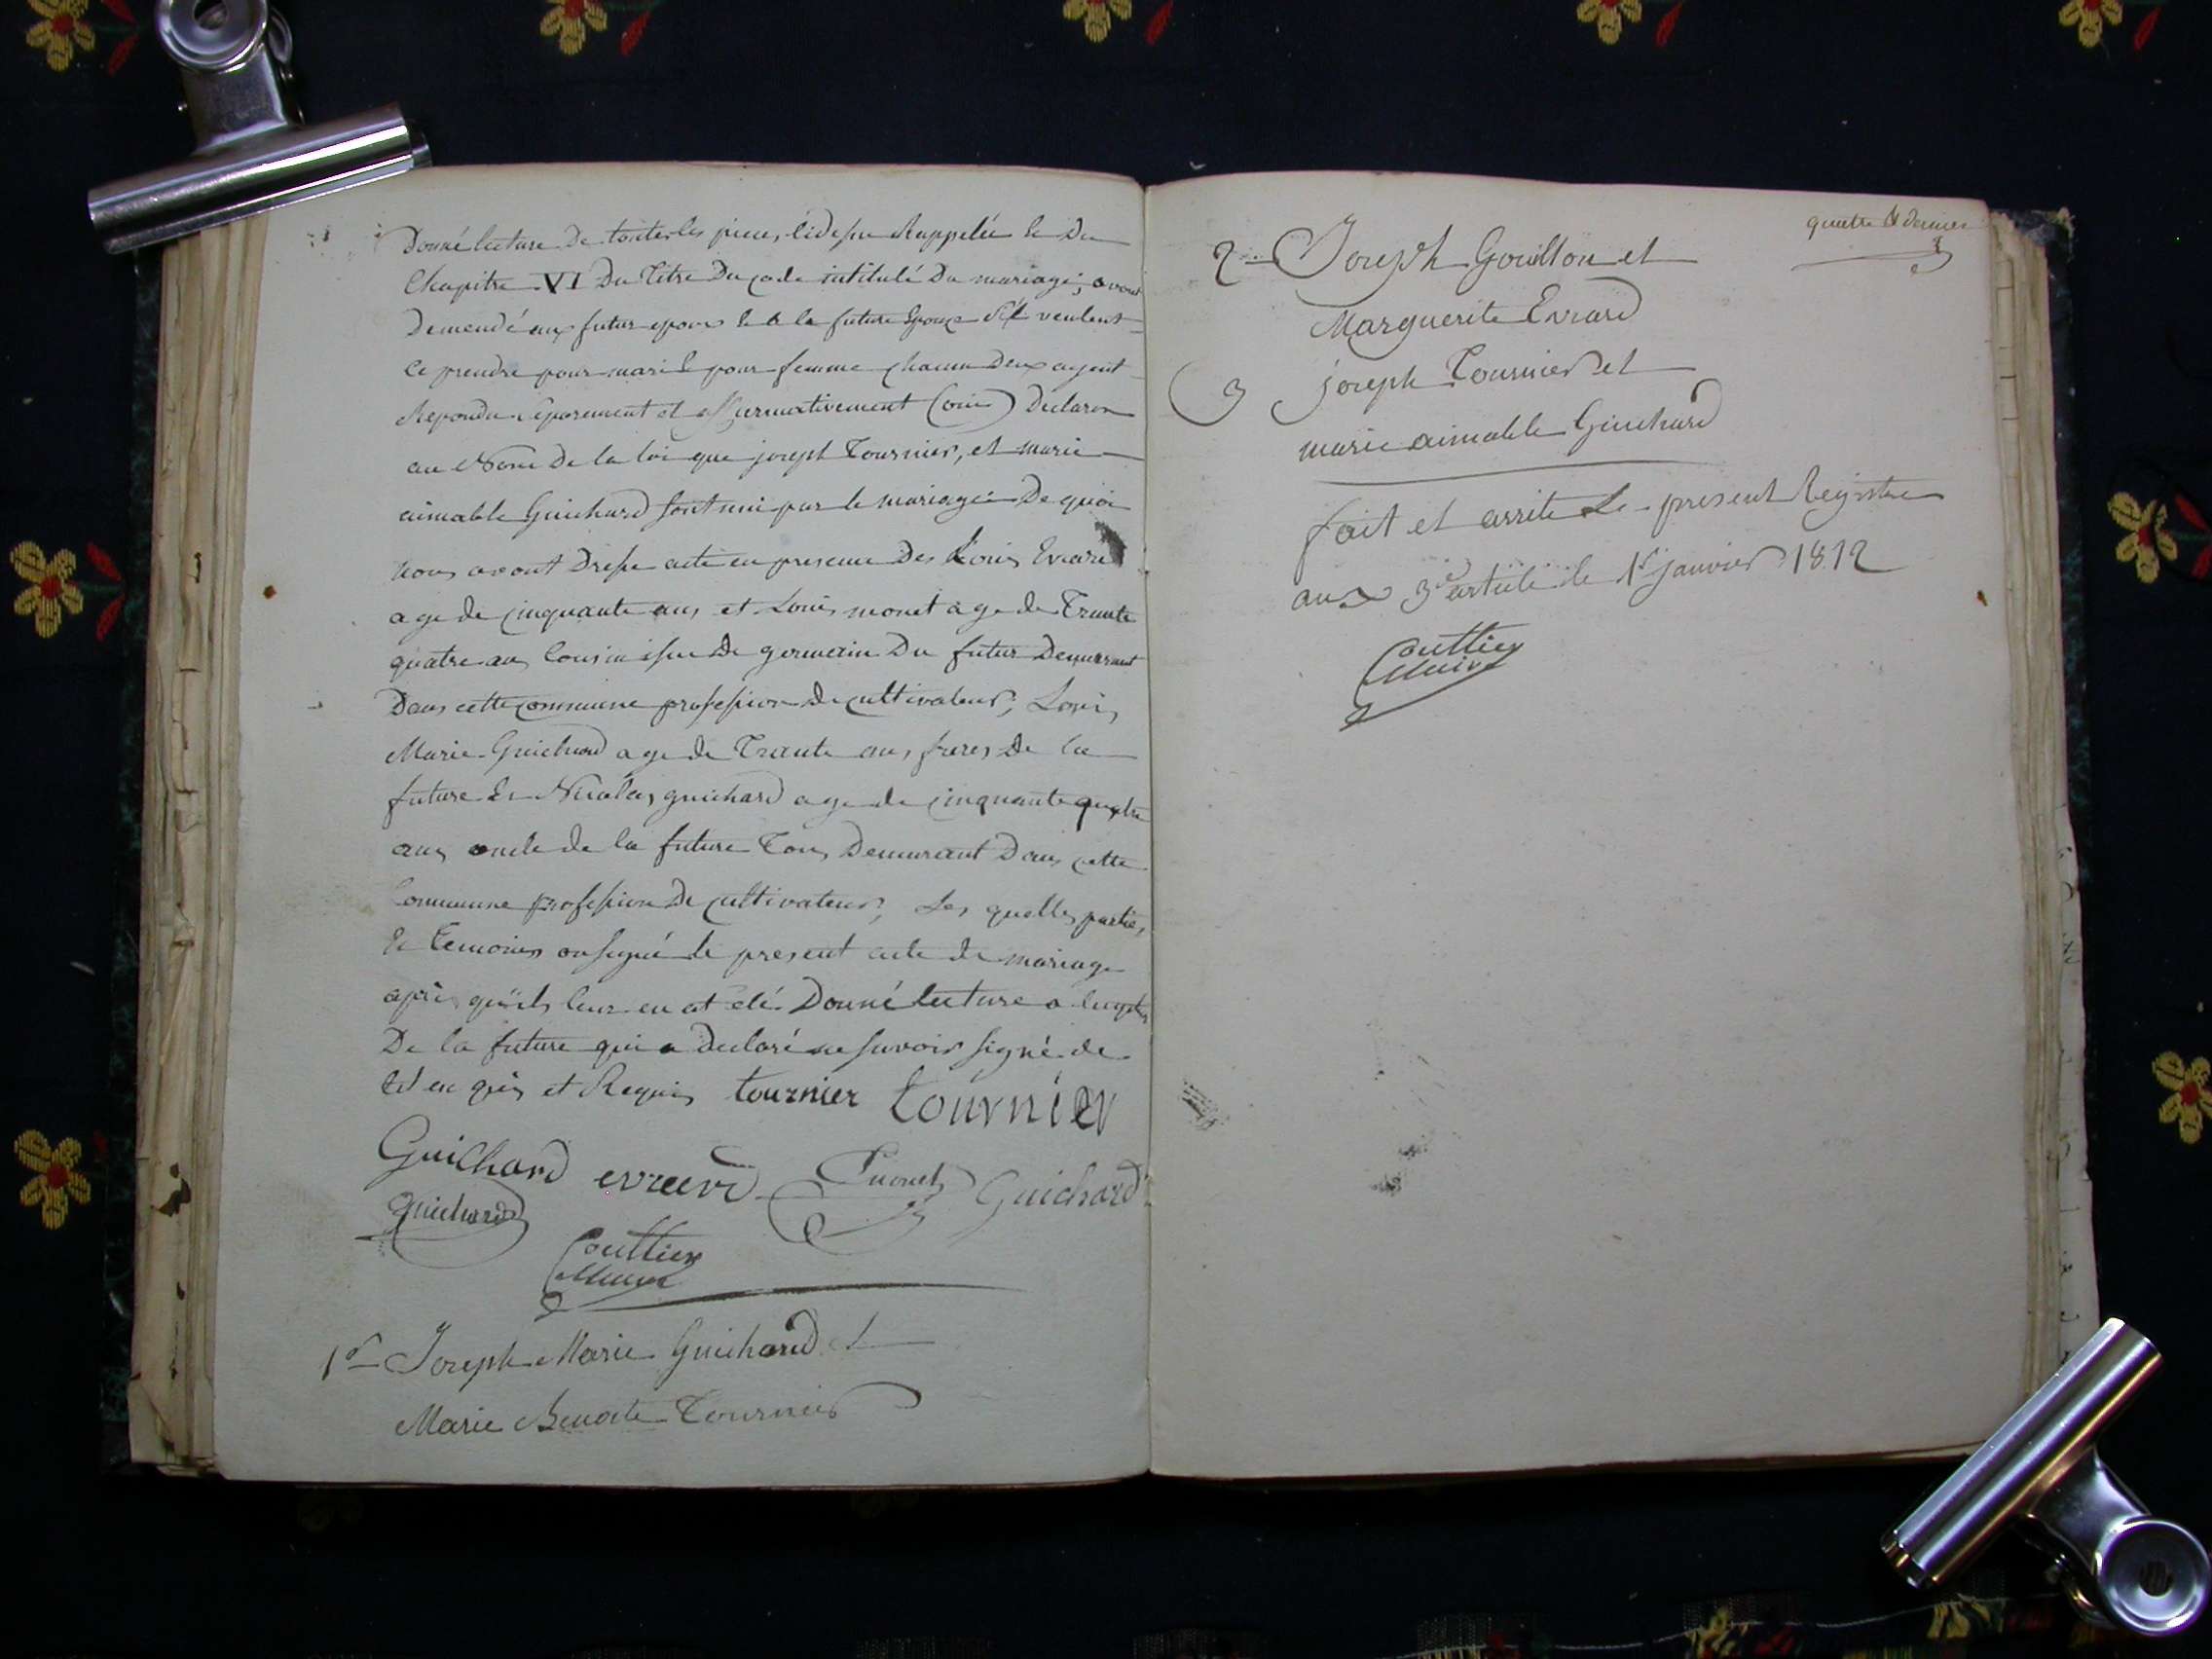 Donné lecture De toutes les pieces, cidessu Rappelée & Du
Chapitre VI Du Titre Du Code intitulé Du mariage; avons
Demendé aux futur epoux & a la future Epouze s'il veulent
ce prendre pour mari & pour femme chacun Deux ayant
Repondu séparement et affirmativement (oui) Declaron
au Nom De la loi que joseph Tournier, et marie
aimable Guichard sont uni par le mariage De quoi
nous avont Dressé acte en presence Des Louis Evrard
age de cinquante ans, et Louis monet age de Trante
quatre ans Cousin issu De germain Du futur Demeurant
Dans cette commune profession de cultivateur, Louis
Marie Guichard age de Trante ans, freres De la
future & Nicolas guichard age de cinquante quatre
ans oncle de la future Tous Demeurant Dans cette
Commune profession De cultivateur, Les quelles partie,
& Temoins on signé le present acte de mariage
après qu'ils leur en at été Donné lecture a
De la future qui a Declaré ne savoir signé de
ce en quis et Requis tournier tournier
Guichard evrard monet Guichard
guichard
Couttier
Maire
1º Joseph Marie Guichard &
Marie Benoite Tournier
quatre & dernier
2 Joseph Gouillon et
Marguerite Evrard
3 joseph Tournier et
marie aimable Guichard
fait et arrite Le present Registre
aux 3e article le 1er janvier 1812
Couttier
Maire